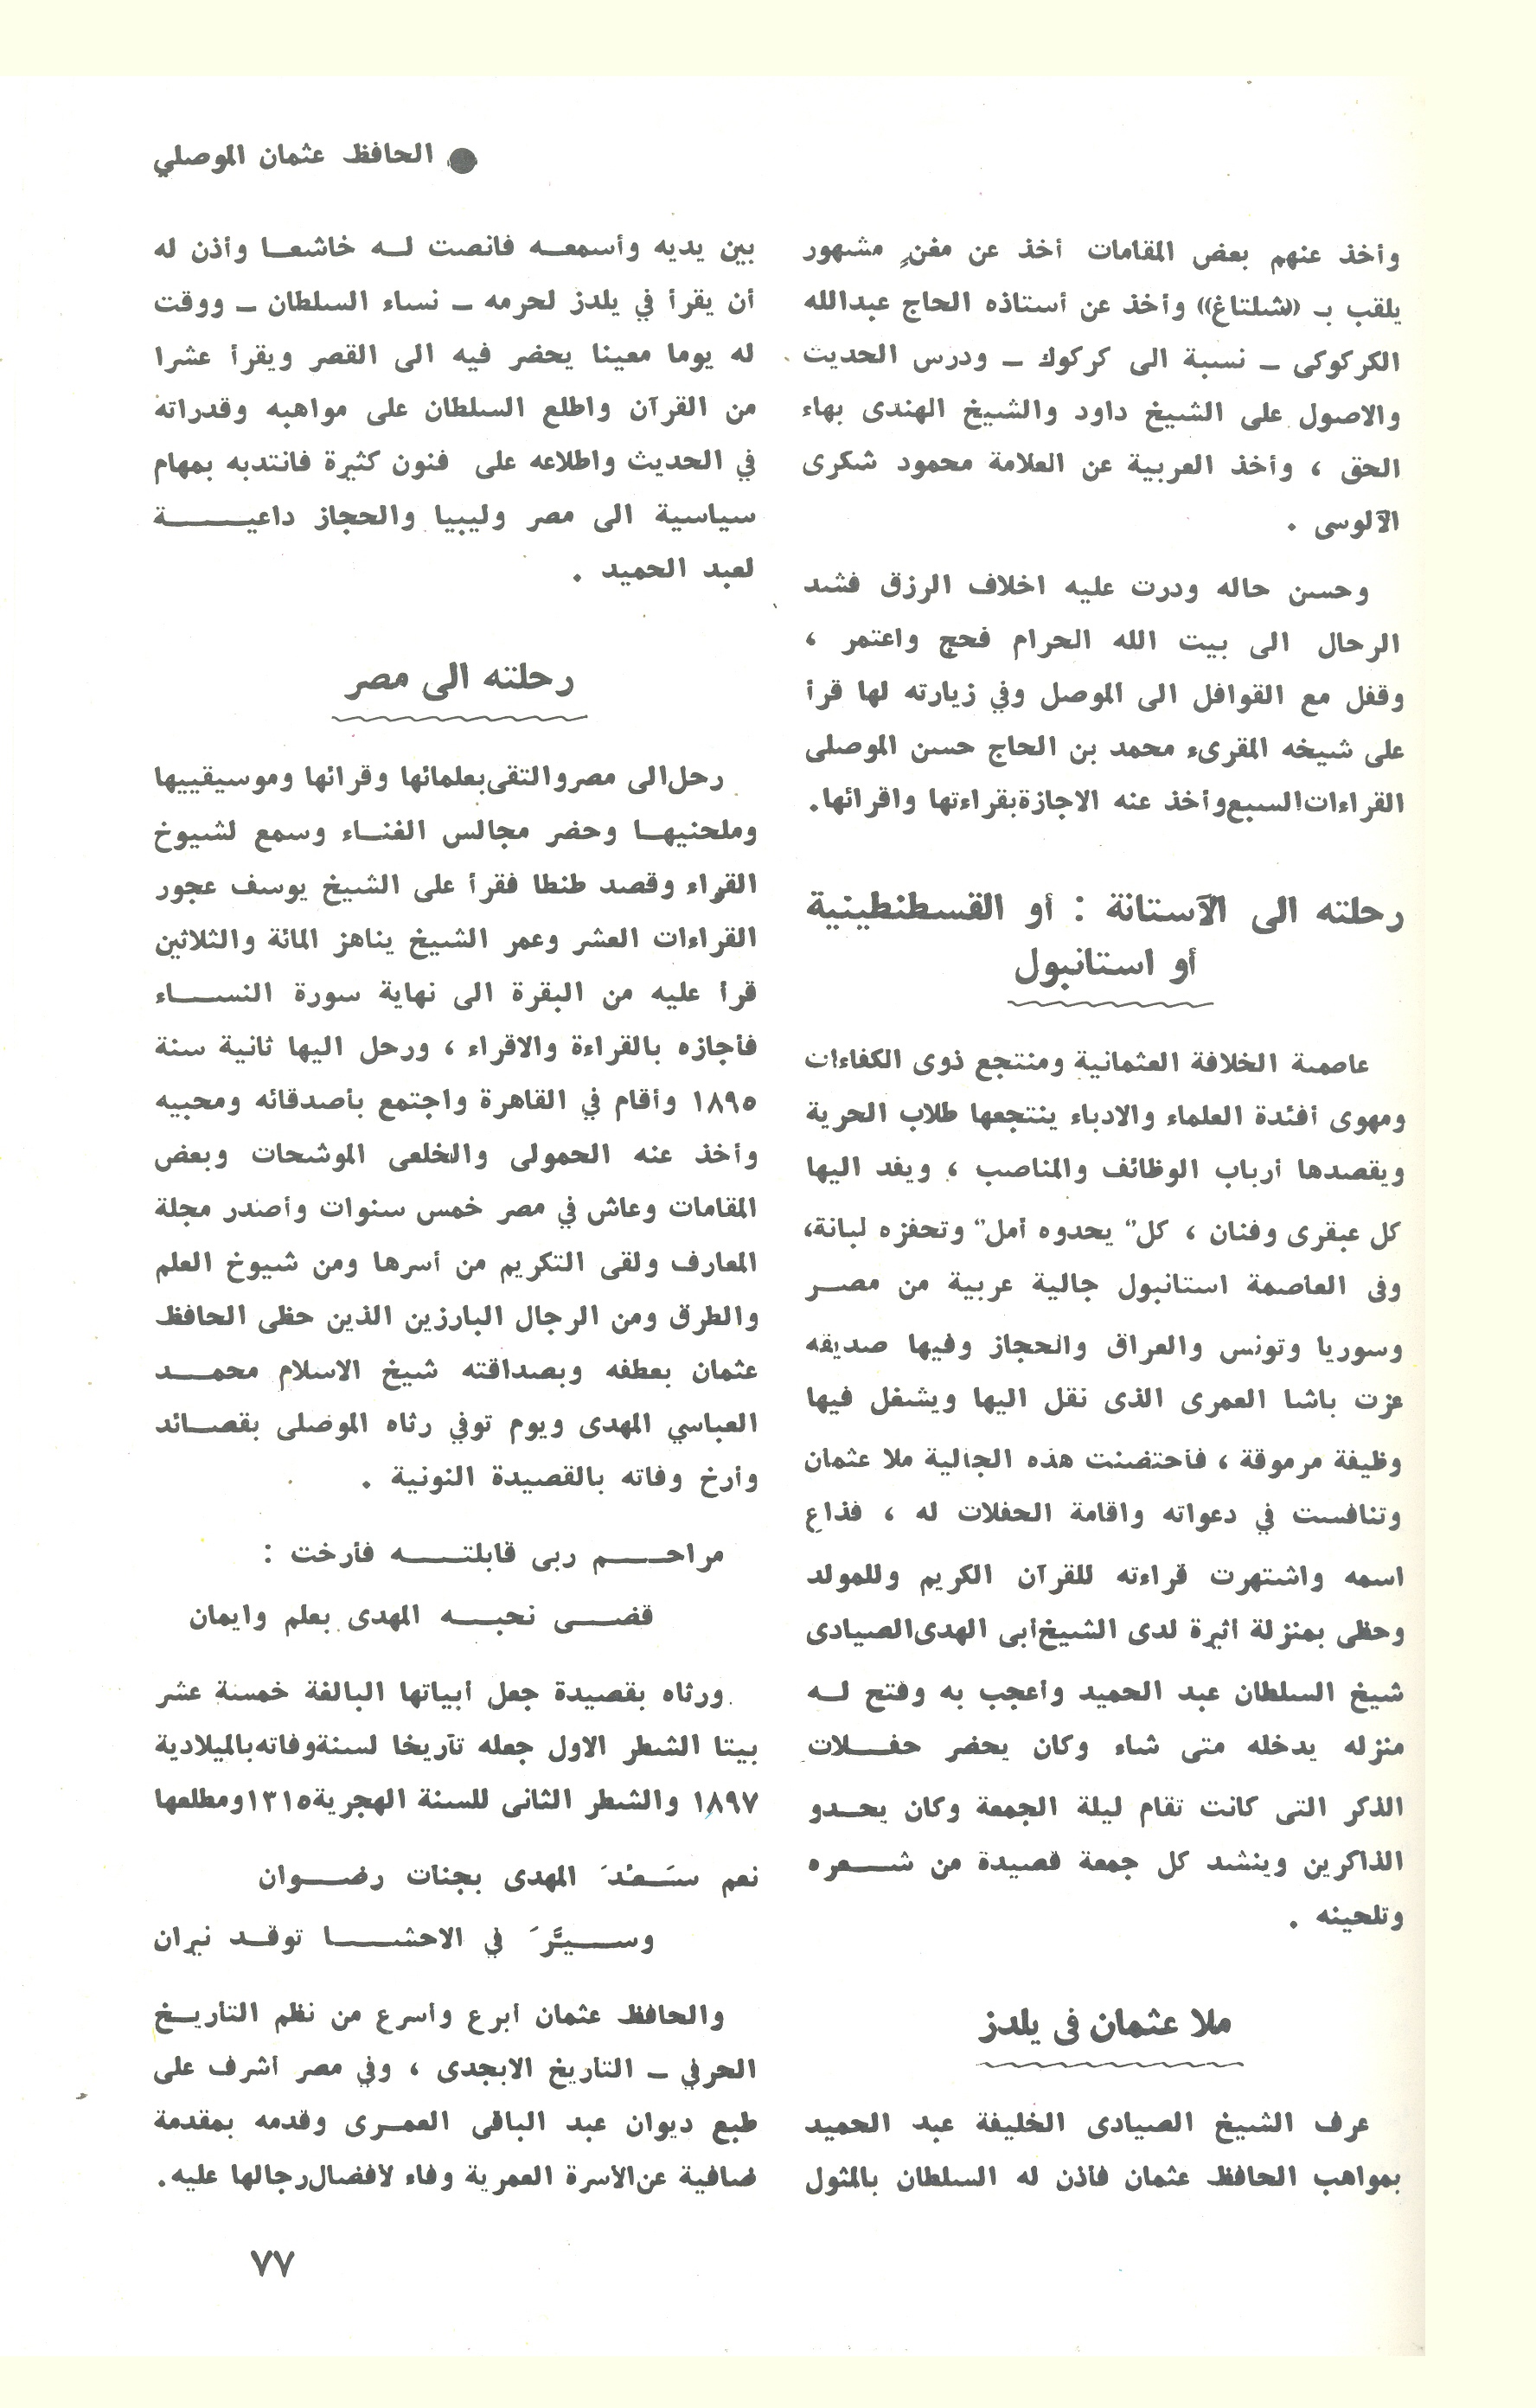 ● الحافظ عثمان الموصلي
وأخذ عنهم بعض المقامات أخذ عن مغنٍ مشهور
يلقب بـ «شلتاغ» وأخذ عن أستاذه الحاج عبدالله
الكركوكى ــ نسبة الى كركوك ــ ودرس الحديث
والاصول على الشيخ داود والشيخ الهندى بهاء
الحق ، وأخذ العربية عن العلامة محمود شكرى
الآلوسى .
وحسن حاله ودرت عليه اخلاف الرزق فشد
الرحال الى بيت الله الحرام فحج واعتمر ،
وقفل مع القوافل الى الموصل وفي زيارته لها قرأ
على شيخه المقرىء محمد بن الحاج حسن الموصلى
القراءات السبع وأخذ عنه الاجازة بقراءتها واقرائها.
رحلته الى الآستانة : أو القسطنطينية
أو استانبول
عاصمة الخلافة العثمانية ومنتجع ذوى الكفاءات
ومهوى أفئدة العلماء والادباء ينتجعها طلاب الحرية
ويقصدها أرباب الوظائف والمناصب ، ويفد اليها
كل عبقرى وفنان ، كلٌ يحدوه أملٌ وتحفزه لبانة،
وفى العاصمة استانبول جالية عربية من مصر
وسوريا وتونس والعراق والحجاز وفيها صديقه
عزت باشا العمرى الذى نقل اليها ويشغل فيها
وظيفة مرموقة ، فأحتضنت هذه الجالية ملا عثمان
وتنافست في دعواته واقامة الحفلات له ، فذاع
اسمه واشتهرت قراءته للقرآن الكريم وللمولد
وحظى بمنزلة اثيرة لدى الشيخ أبى الهدى الصيادى
شيخ السلطان عبد الحميد وأعجب به وفتح لـه
منزله يدخله متى شاء وكان يحضر حفـلات
الذكر التى كانت تقام ليلة الجمعة وكان يحـدو
الذاكرين وينشد كل جمعة قصيدة من شـعره
وتلحينه .
ملا عثمان فى يلدز
عرف الشيخ الصيادى الخليفة عبد الحميد
بمواهب الحافظ عثمان فأذن له السلطان بالمثول
بين يديه وأسمعـه فانصت لـه خاشعـا وأذن له
أن يقرأ في يلدز لحرمه ــ نساء السلطان ــ ووقت
له يوما معينا يحضر فيه الى القصر ويقرأ عشرا
من القرآن واطلع السلطان على مواهبه وقدراته
في الحديث واطلاعه على فنون كثيرة فانتدبه بمهام
سياسية الى مصر وليبيا والحجاز داعيـــة
لعبد الحميد .
رحلته الى مصر
رحل الى مصر والتقى بعلمائها وقرائها وموسيقييها
وملحنيهـا وحضر مجالس الغنـاء وسمع لشيوخ
القراء وقصد طنطا فقرأ على الشيخ يوسف عجور
القراءات العشر وعمر الشيخ يناهز المائة والثلاثين
قرأ عليه من البقرة الى نهاية سورة النسـاء
فأجازه بالقراءة والاقراء ، ورحل اليها ثانية سنة
١٨٩٥ وأقام في القاهرة واجتمع بأصدقائه ومحبيه
وأخذ عنه الحمولى والخلعى الموشحات وبعض
المقامات وعاش في مصر خمس سنوات وأصدر مجلة
المعارف ولقى التكريم من أسرها ومن شيوخ العلم
والطرق ومن الرجال البارزين الذين حظى الحافظ
عثمان بعطفه وبصداقته شيخ الاسلام محمـد
العباسي المهدى ويوم توفي رثاه الموصلى بقصـائد
وأرخ وفاته بالقصيدة النونية .
مراحـــم ربى قابلتـــه فأرخت :
قضــى نحبــه المهدى بعلم وايمان
ورثاه بقصيدة جعل أبياتها البالغة خمسة عشر
بيتا الشطر الاول جعله تآريخا لسنة وفاته بالميلادية
١٨٩٧ والشطر الثانى للسنة الهجرية ١٣١٥ ومطلعها
نعم سـَـعْدَ المهدى بجنات رضــوان
وســيَّرَ في الاحشـــا توقـد نيران
والحافظ عثمان أبرع وأسرع من نظم التأريـخ
الحرفي ــ التأريخ الابجدى ، وفي مصر أشرف على
طبع ديوان عبد الباقى العمـرى وقدمه بمقدمة
ضافية عن الأسرة العمرية وفاء لأفضال رجالها عليه.
٧٧